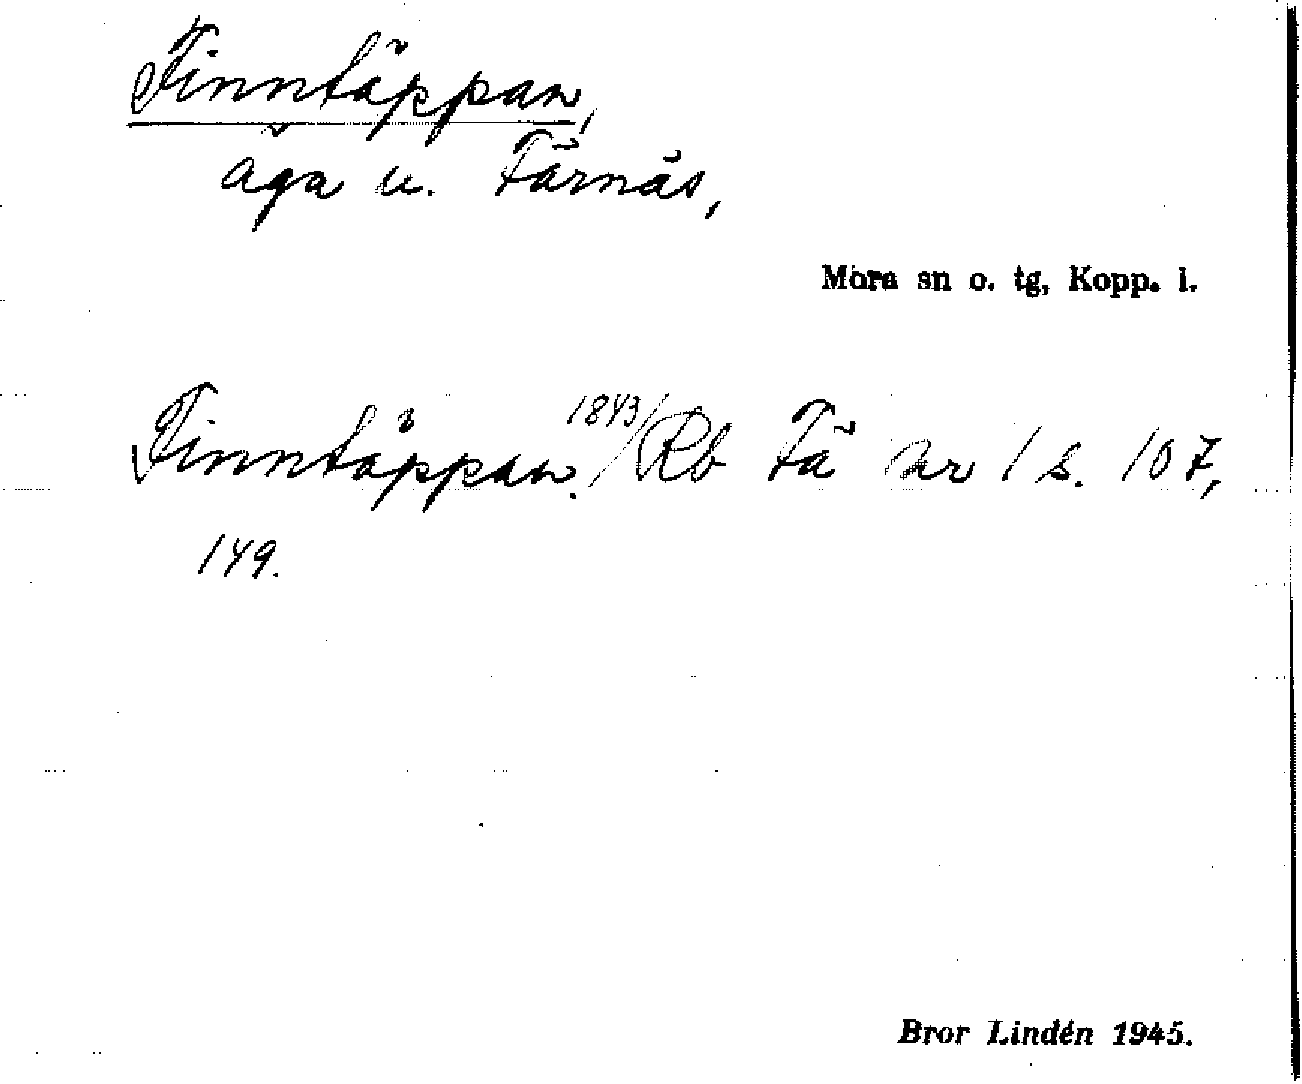 Finntäppan,
äga u. Färnäs,
Mora sn o. tg, Kopp. l.
Finntäppan. 1843/ Rb Fä nr 1 s. 107,
149.
Bror Lindén 1945.